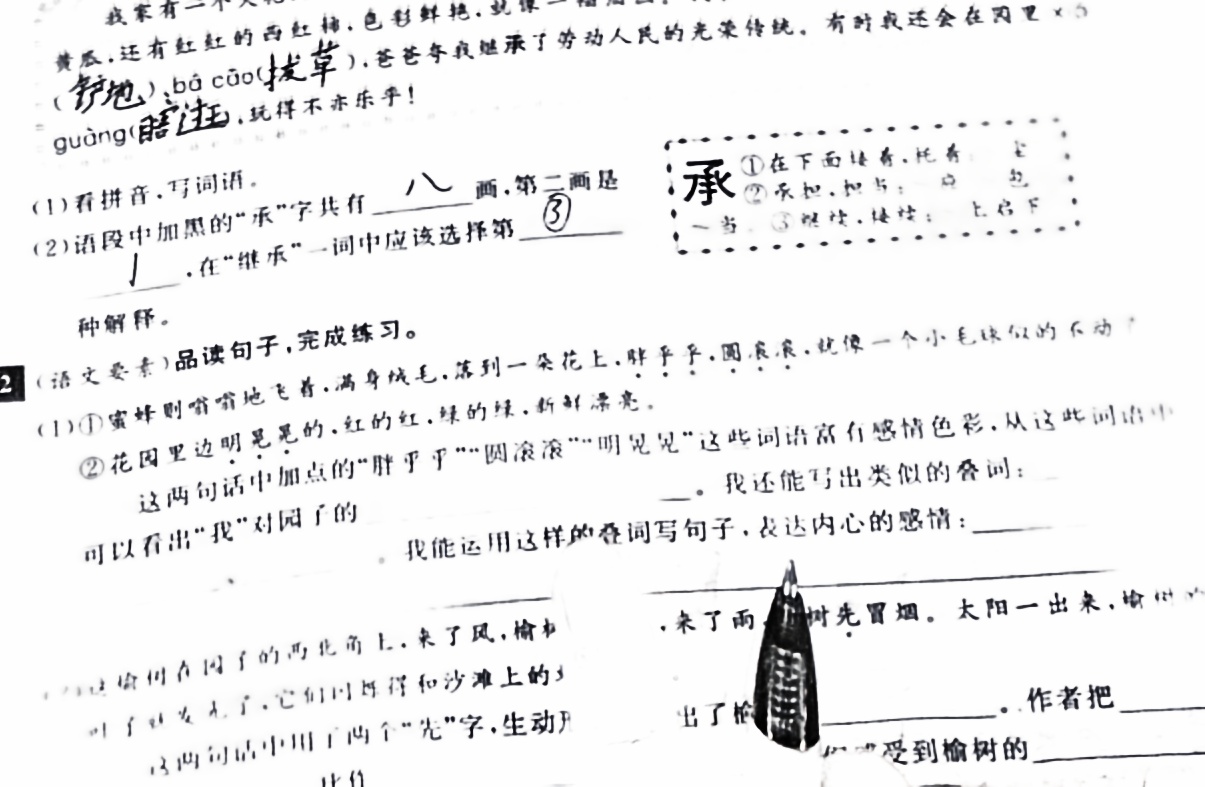 我家有一个大
黄瓜,还有红红的西红柿,色彩鲜艳,就像一幅油画。
(铲地)、bá cǎo(拔草),爸爸夸我继承了劳动人民的光荣传统。有时我还会在园里
guàng(瞎逛),玩得不亦乐乎!
(1)看拼音,写词语。
(2)语段中加黑的“承”字共有 八 画,第二画是
亅,在“继承”一词中应该选择第 ③
种解释。
承 ①在下面接着,托着
②承担,担当:
一当 ③继续,接续: 上启下
2 (语文要素)品读句子,完成练习。
(1)①蜜蜂则嗡嗡地飞着,满身绒毛,落到一朵花上,胖乎乎,圆滚滚,就像一个小毛球似的不动了
②花园里边明晃晃的,红的红,绿的绿,新鲜漂亮。
这两句话中加点的“胖乎乎”“圆滚滚”“明晃晃”这些词语富有感情色彩,从这些词语中
可以看出“我”对园子的 。我还能写出类似的叠词:
。我能运用这样的叠词写句子,表达内心的感情:
榆树在园子的西北角上,来了风,榆 ,来了雨, 树先冒烟。太阳一出来,榆树的
叶子就发光了,它们闪烁得和沙滩上的
这两句话中用了两个“先”字,生动 出了榆 。作者把
比作 受到榆树的